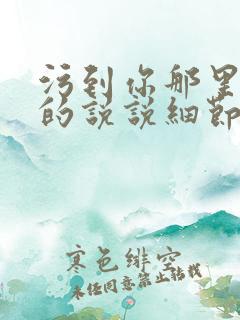 污到你那里
的说说細節
寒色绯空
未经同意禁止转载